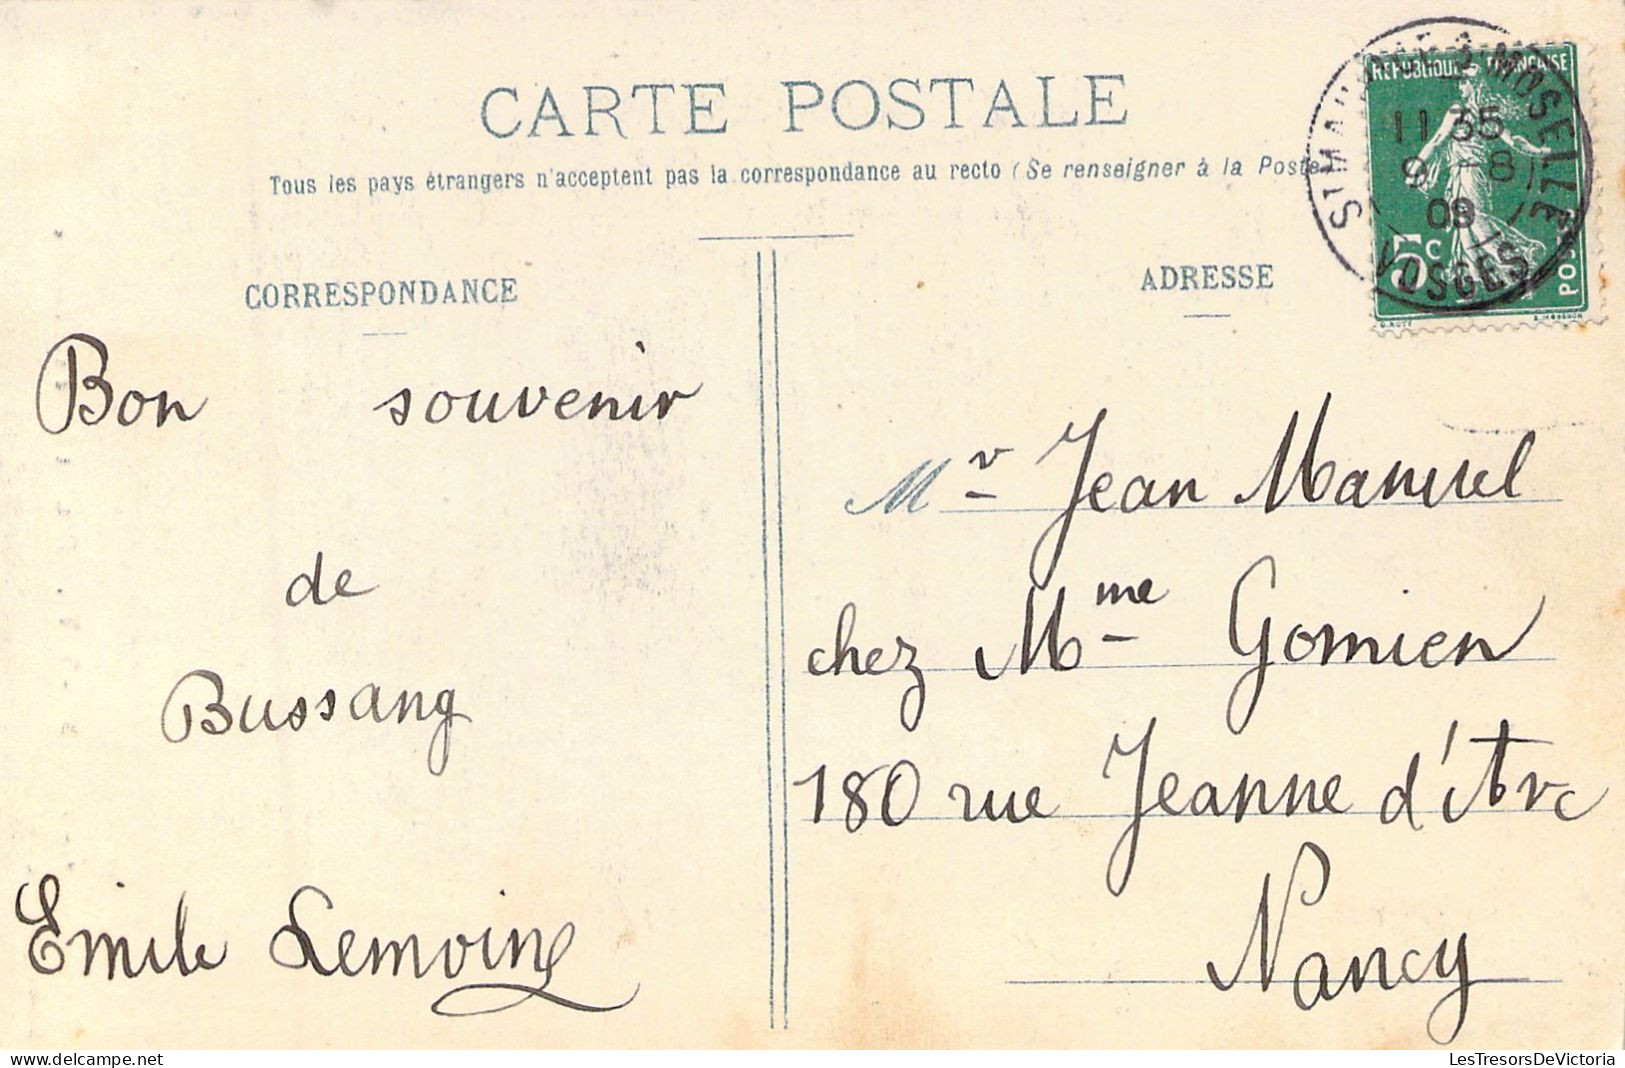 CARTE POSTALE
Tous les pays étrangers n'acceptent pas la correspondance au recto (Se renseigner à la Poste
CORRESPONDANCE
Bon souvenir
de
Bussang
Emile Lemoine
ADRESSE
Mr Jean Manuel
chez Mme Gomien
180 rue Jeanne d'Arc
Nancy
REPUBLIQUE FRANÇAISE
5c
POSTES
11 35
9 - 8
09
VOSGES
LesTresorsDeVictoria